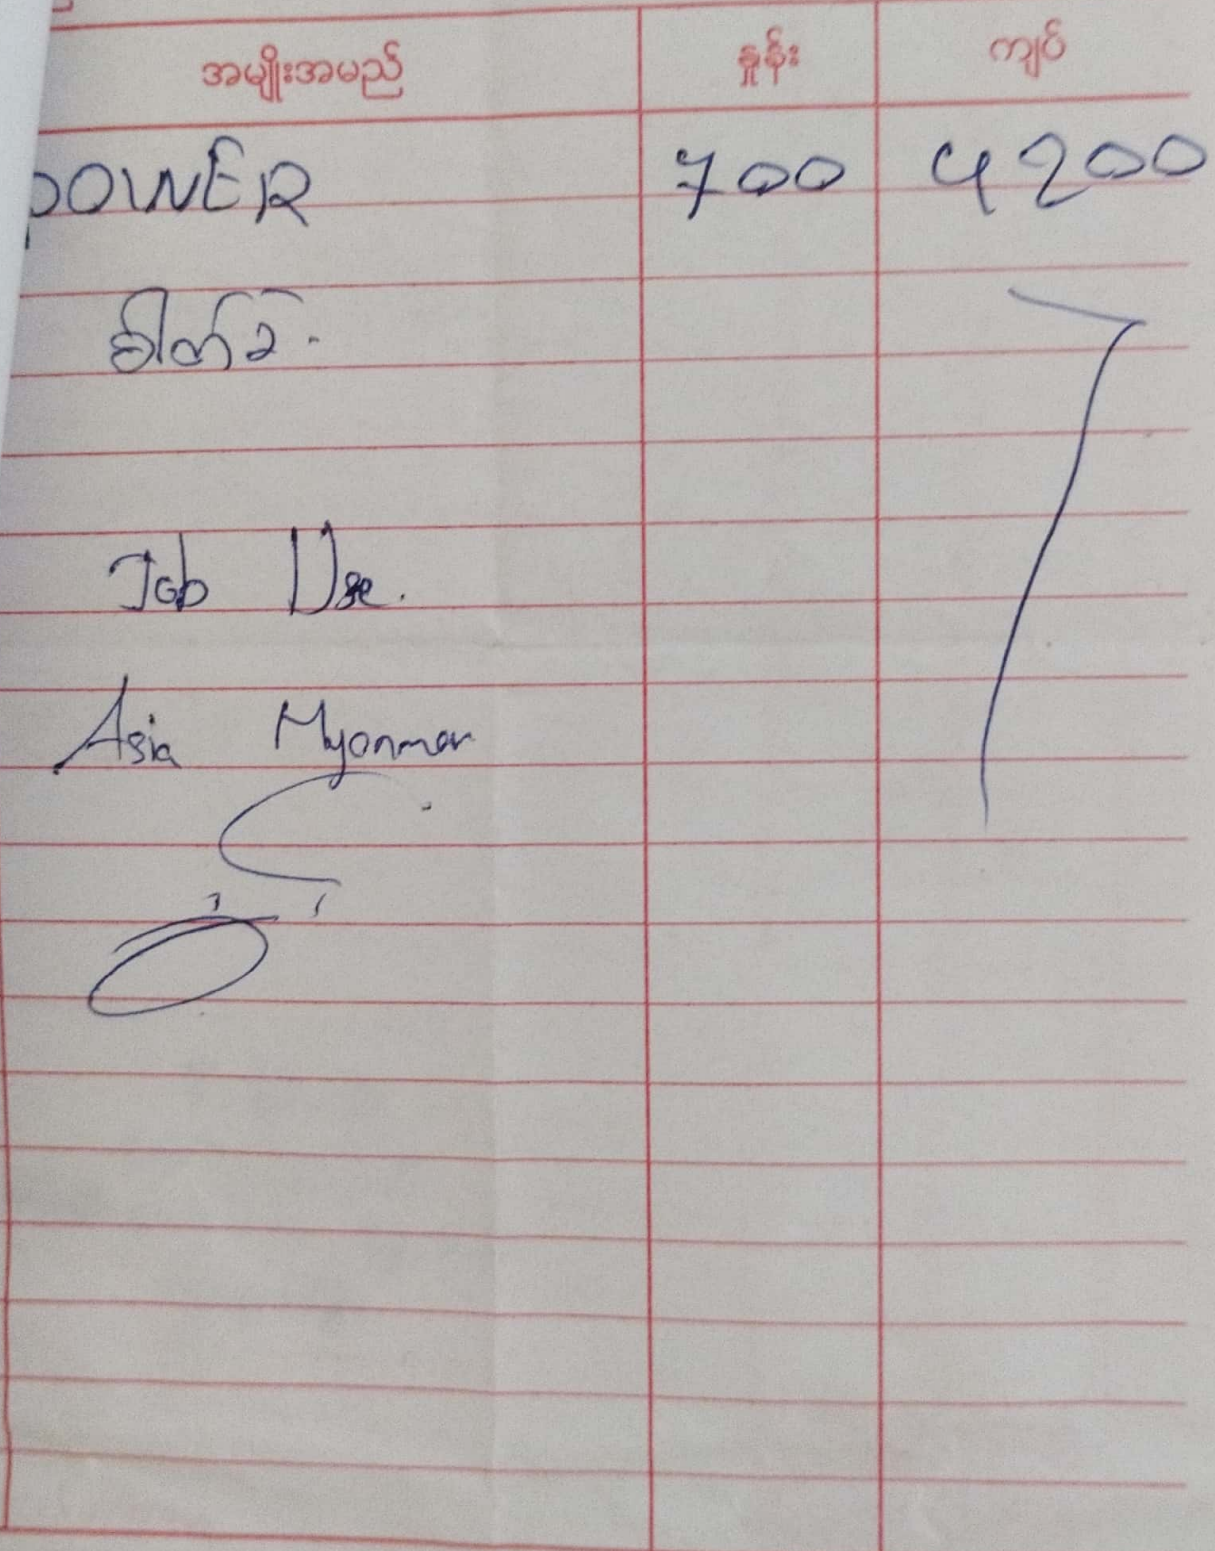 အမျိုးအမည် နှုန်း ကျပ်
POWER 700 4200
ဓါတ်ခဲ.
Job Use.
Asia Myanmar